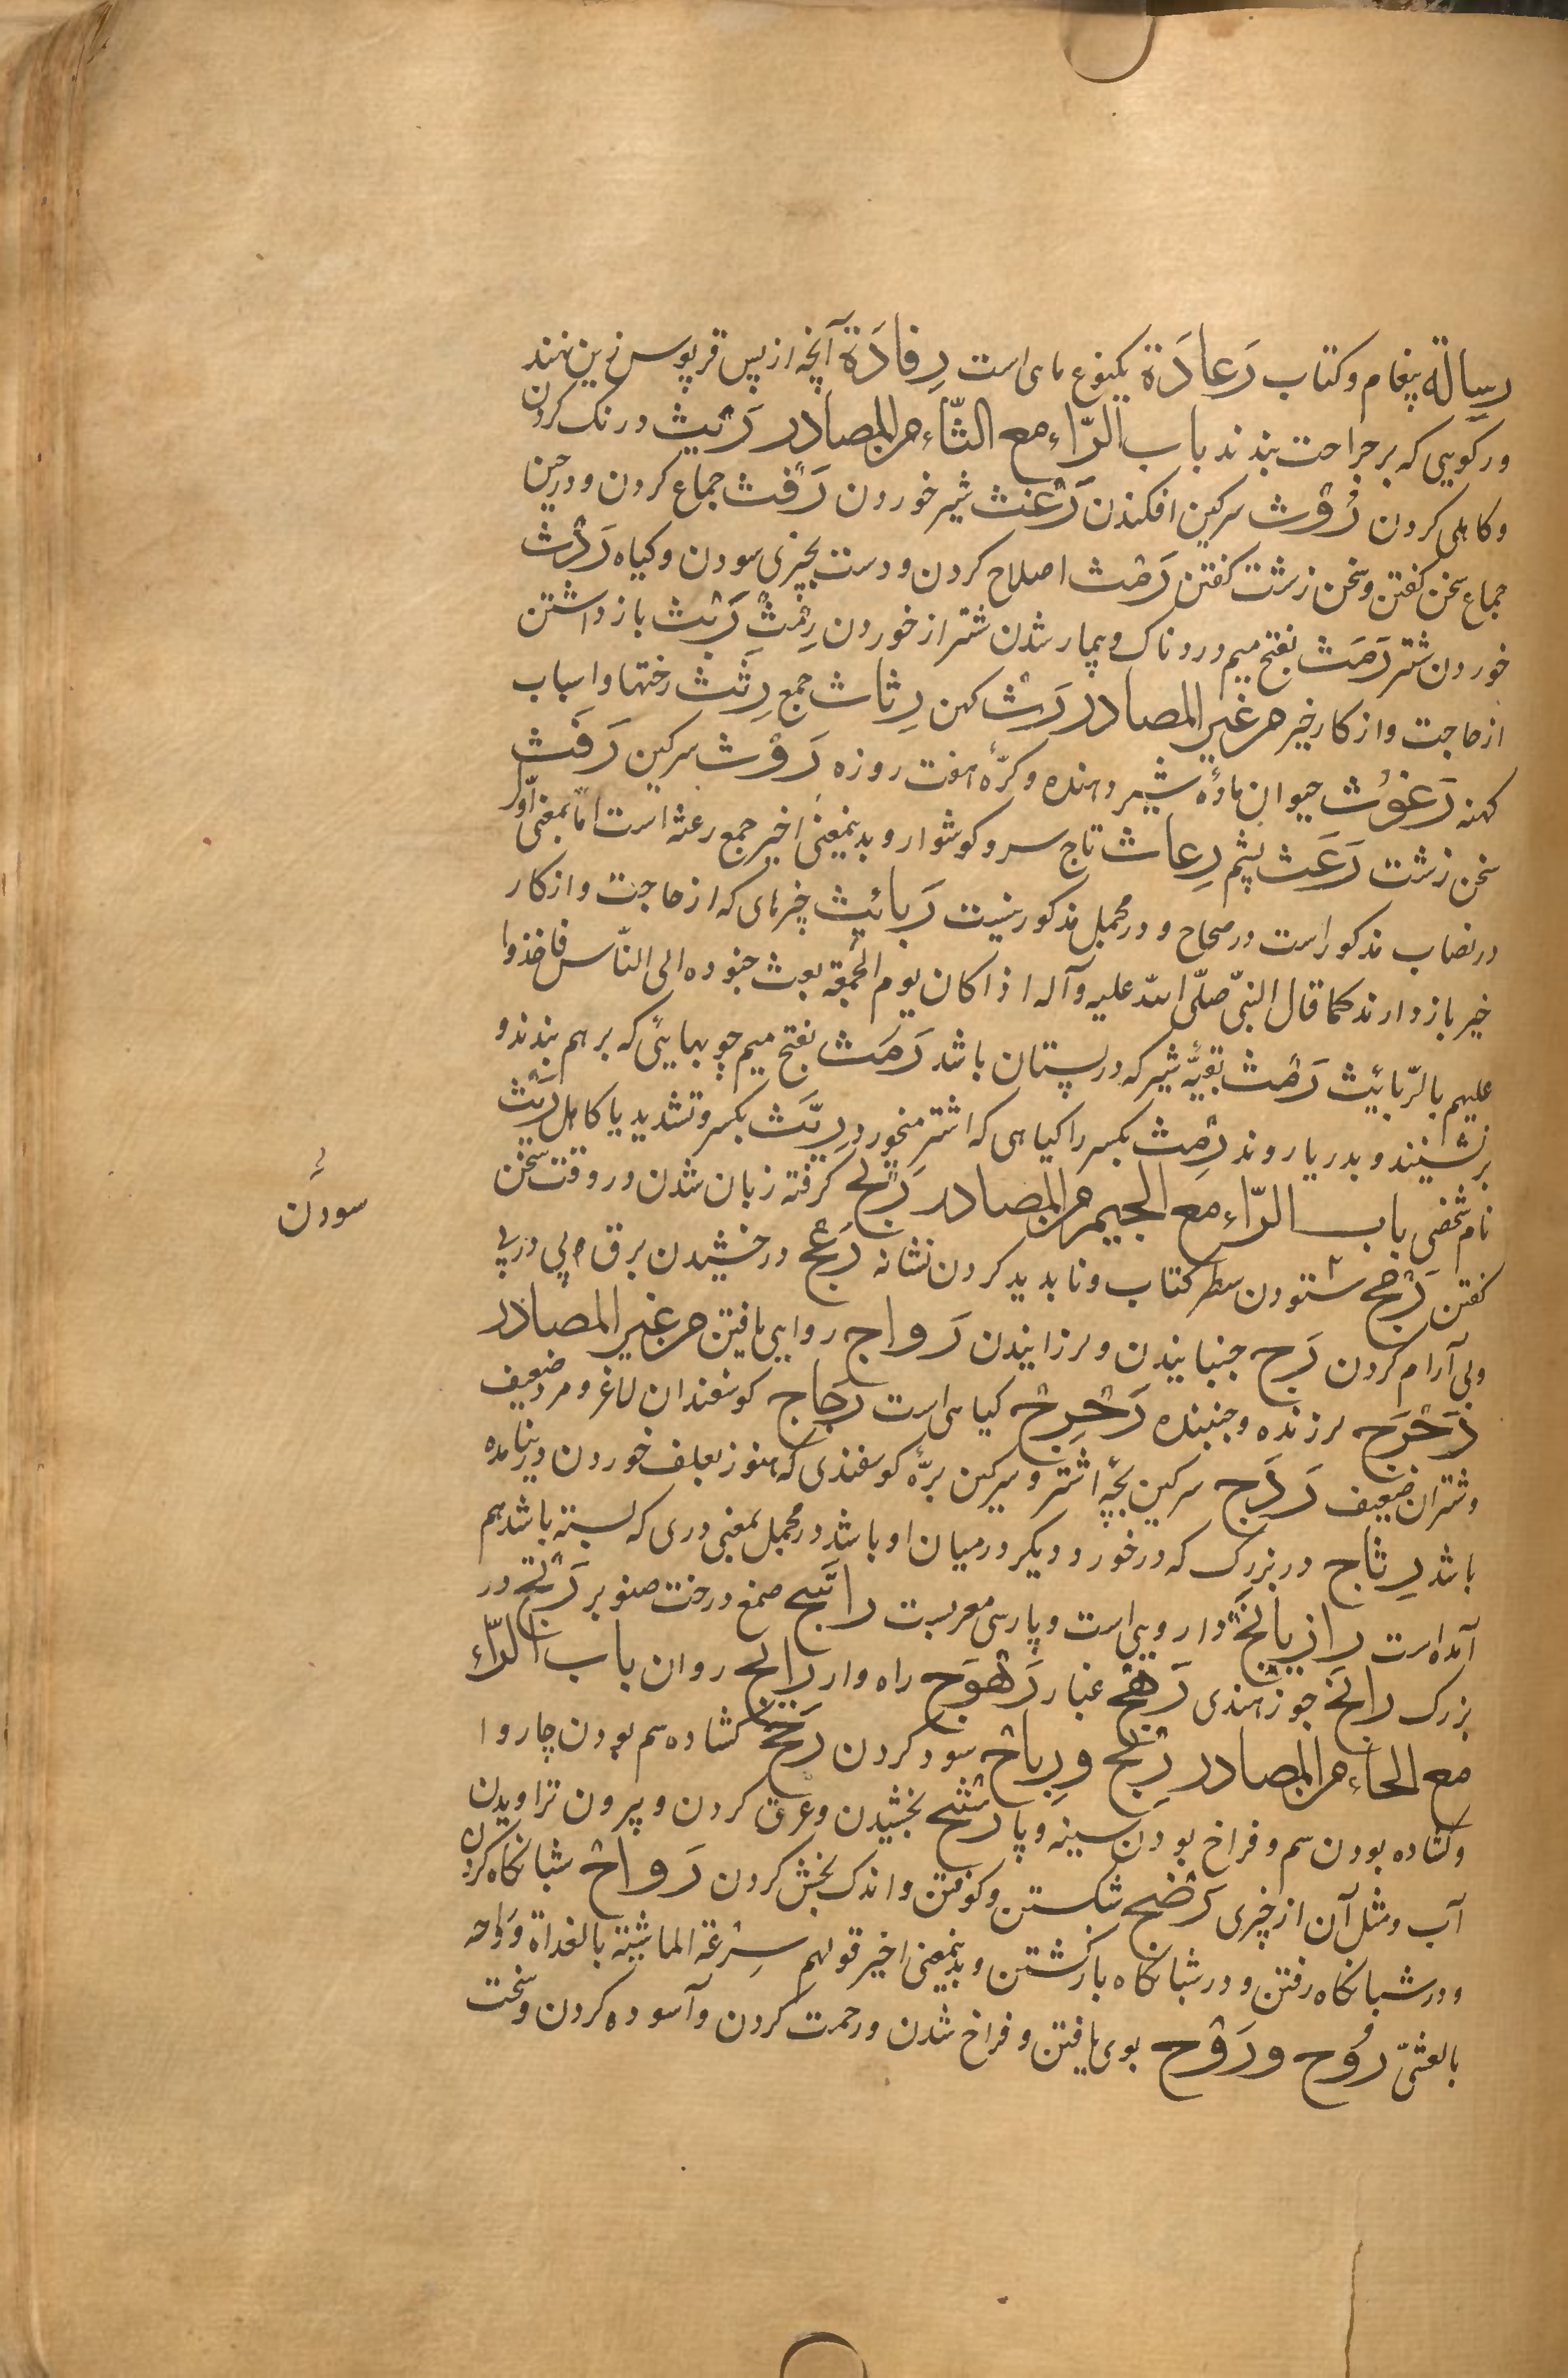 رسالة پیغام و کتاب رَعادَة یکنوع ماهی است رِفادَة آنچه از پس قرپوس زین نهند
ورکویی که بر جراحت بندند باب الرّاء مع الثّاء من المصادر رَیْث درنک کردن
و کاهلی کردن رُوْث سرکین افکندن رَغْث شیر خوردن رَفْث جماع کردن و در حین
جماع سخن کفتن و سخن زشت کفتن رَمْث اصلاح کردن و دست بچیزی سودن و کیاه رَمْث
خوردن شتر رَمَث بفتح میم دردناک و بیمار شدن شتر از خوردن رِمْث رَبْث باز داشتن
از حاجت و از کار خیر من غیر المصادر رَثّ کهن رِثاث جمع رِثَث رختها و اسباب
کهنه رَغُوْث حیوان مادهٔ شیر دهنده و کرّهٔ هفت روزه رَوْث سرکین رَفَث
سخن زشت رَعَث پشم رِعاث تاج سر و کوشوار و بدینمعنیٔ اخیر جمع رعثه است امّا بمعنی اوّل
در نصاب مذکور است در صحاح و در مجمل مذکور نیست رَبائیث چیزهای که از حاجت و از کار
خیر باز دارند کما قال النبیّ صلّی اللّه علیه و آله اذا کان یوم الجُمعة بعث جنوده الی النّاس فاخذوا
علیهم بالرّبائیث رَمْث بقیّهٔ شیر که در پستان باشد رَمَث بفتح میم چوبهایی که بر هم بندند و
بر نشینند و بدریا روند رِمْث بکسر را کیاهی که اشتر میخورد رِیَّث بکسر و تشدید یا کاهل رَیْث
نام شخصی باب الرّاء مع الجیم من المصادر رَتَج کرفته زبان شدن در وقت سخن
کفتن رَمْج ستودن سطر کتاب و ناپدید کردن نشانه رَعْج درخشیدن برق و پی در پی
و بی آرام کردن رَج جنبانیدن و لرزانیدن رَواج روایی یافتن من غیر المصادر
رَجْرَج لرزنده و جنبنده رِجْرِج کیاهی است رَجاج کوسفندان لاغر و مرد ضعیف
و شتران ضعیف رَدَج سرکین بچّهٔ اشتر و سرکین برّهٔ کوسفندی که هنوز بعلف خوردن در نیامده
باشد رِتاج در بزرک که در خورد دیکر در میان او باشد در مجمل بمعنی دری که بسته باشد هم
آمده است رازیانَج داروییاست و پارسی معربست راتینج صمغ درخت صنوبر رَتَج در
بزرک رانَج جوز هندی رَهَج غبار رَهْوَج راه وار رائج روان باب الرّاء
مع الحاء من المصادر رِبْح و رِباح سود کردن رَحَح کشاده سم بودن چاروا
و کشاده بودن سم و فراخ بودن سینه و پا رَشْح بخشیدن و عرق کردن و بیرون تراویدن
آب و مثل آن از چیزی رَضْح شکستن و کوفتن و اندک بخش کردن رَواح شبانکاه کردن
و در شبانکاه رفتن و در شبانکاه باز کشتن و بدینمعنی اخیر قولهم سرعة الماشیة بالغداة و راحه
بالعشیّ رُوح و رَوْح بوی یافتن و فراخ شدن و رحمت کردن و آسوده کردن و سخت
سودن